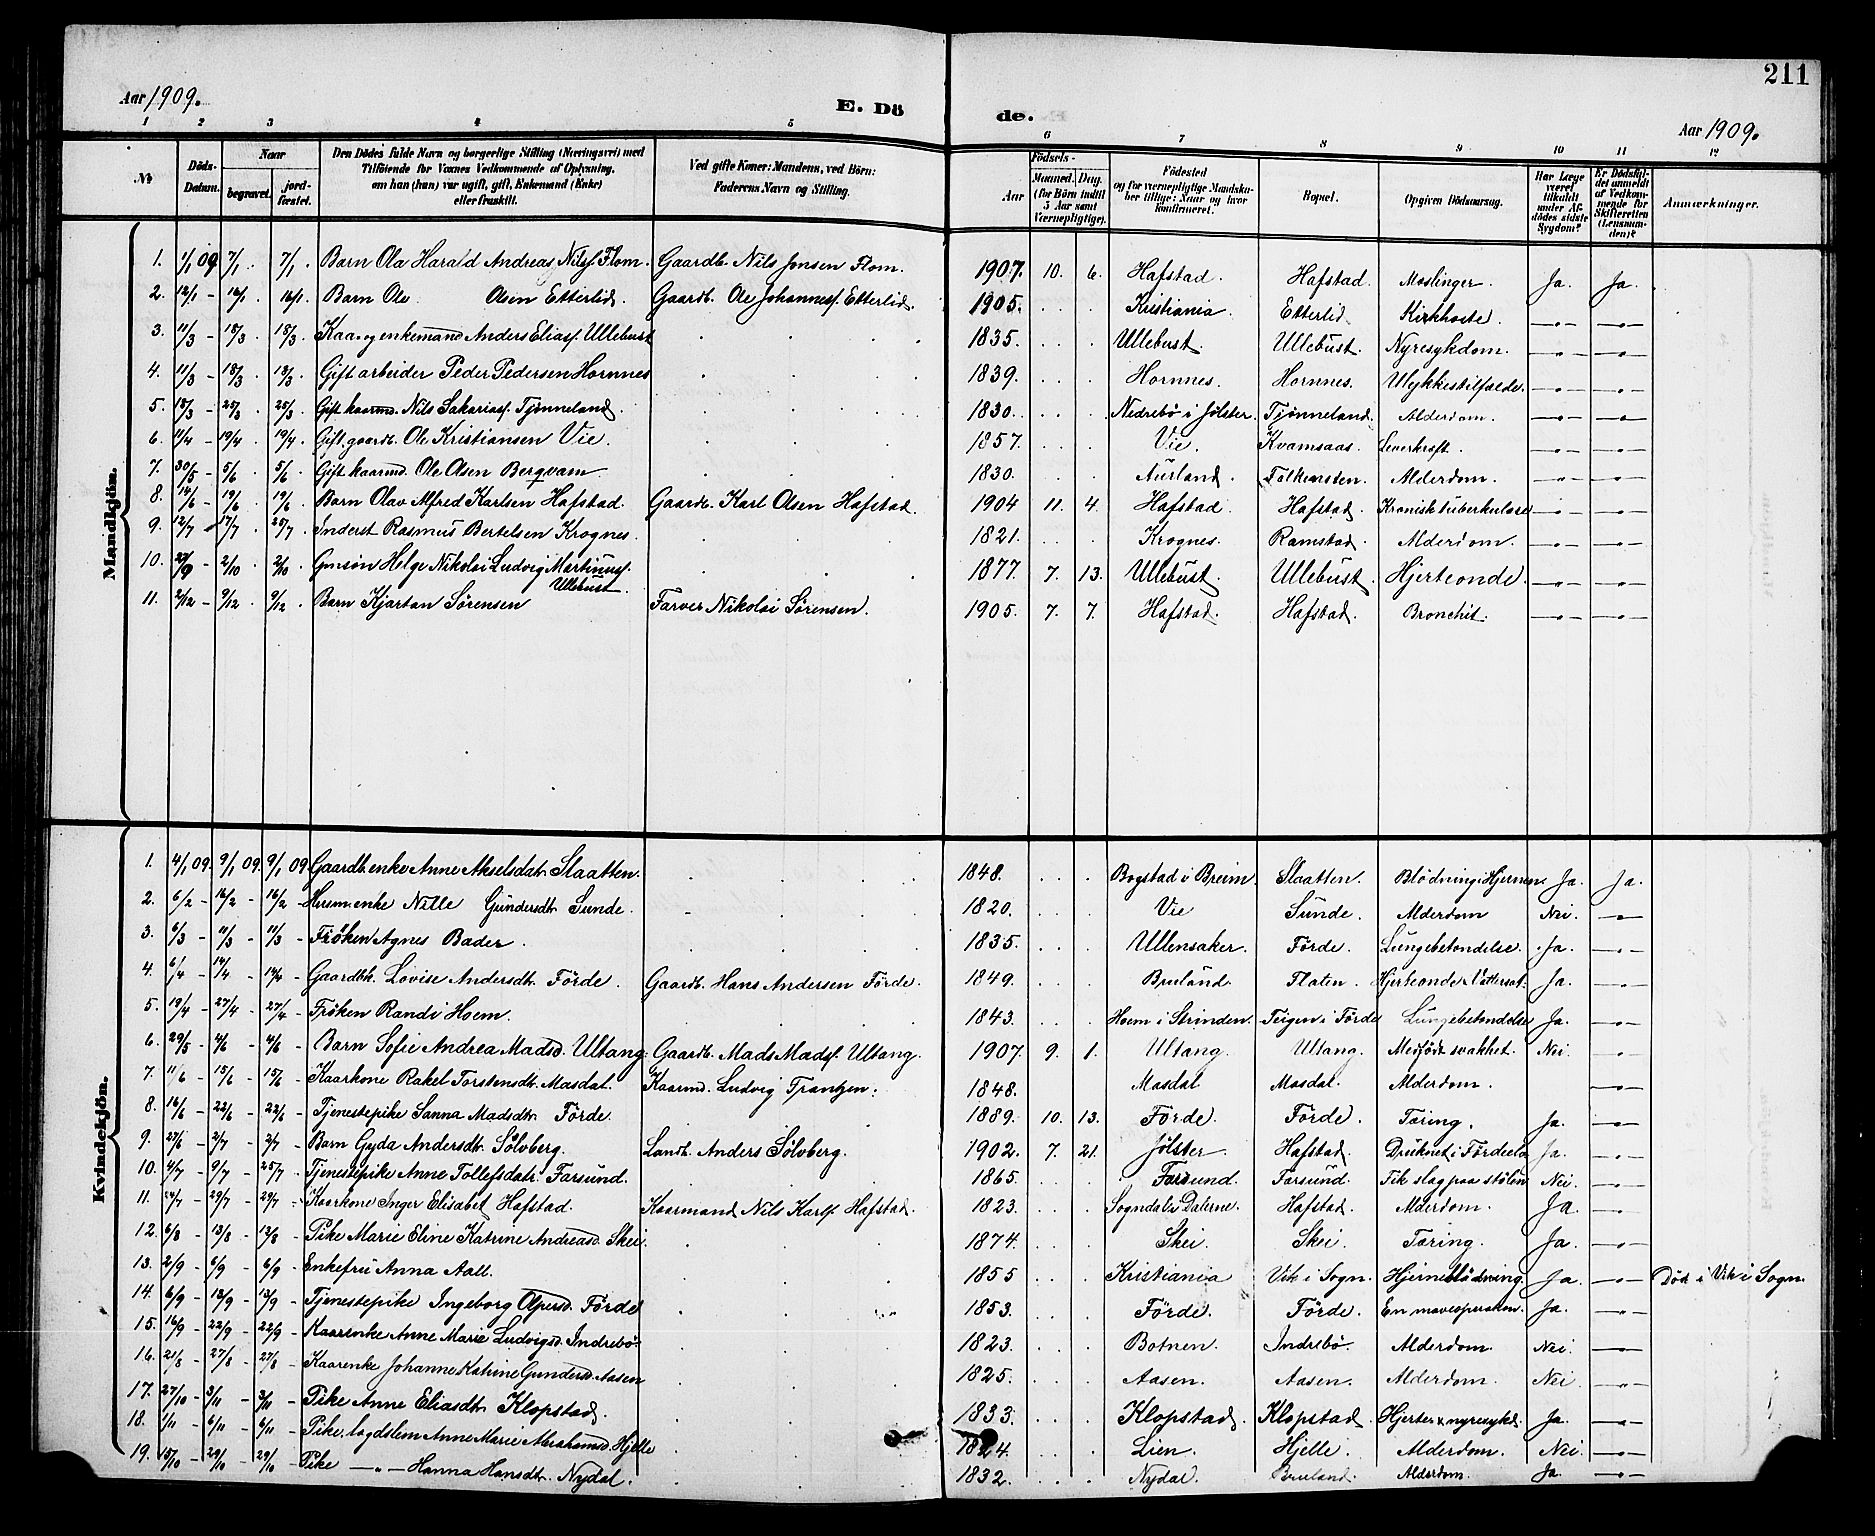 211
Aar 1909.
E. Dö
de.
Aar 1909.
1 2 3 4 5 6 7 8 9 10 11 12
No
Döds-Datum.
Naar
begravet.
jord-fæstet.
Den Dödes fulde Navn og borgerlige Stilling (Næringsvei) med
Tilföiende for Voxnes Vedkommende af Oplysning,
om han (hun) var ugift, gift, Enkemand (Enke)
eller fraskilt.
Ved gifte Koner: Mandens, ved Börn:
Faderens Navn og Stilling.
Födsels-
Aar
Maaned. Dag.
(for Börn indtil
5 Aar samt
Værnepligtige).
Födested
og for værnepligtige Mandska-
ber tillige: Naar og hvor
konfirmeret.
Bopæl.
Opgiven Dödsaarsag.
Har Læge
været
tilkaldt
under Af-
dödes sidste
Sygdom?
Er Dödsfal-
det anmeldt
af Vedkom-
mende for
Skifteretten
(Lensman-
den)?
Anmærkninger.
Mandkjön.
1. 1/1 09 7/1 . 7/1 . Barn Ola Harald Andreas Nilsf. Flom. Gaardb. Nils Jonsen Flom. 1907. 10. 6. Hafstad. Hafstad. Meslinger. Ja. Ja.
2. 12/1 - 16/1 . 16/1 . Barn Ole Olsen Etterlid. Gaardb. Ole Johannesf. Etterlid. 1905. Kristiania. Etterlid. Kikhoste. -"- -"-
3. 11/3 - 18/3 . 18/3 . Kaar- og enkemand Anders Eliasf. Ullebust 1835. Ullebust. Ullebust. Nyresykdom. -"- -"-
4. 11/3 - 18/3 . 18/3 . Gift arbeider Peder Pedersen Hornnes 1839. Hornnes. Hornnes. Ulykkestilfælde. -"- -"-
5. 18/3 - 25/3 . 25/3 . Gift kaarmd. Nils Sakariasf. Tjønneland. 1830. Nedrebö i Jölster. Tjönneland. Alderdom. -"- -"-
6. 11/4 - 19/4 . 19/4 . Gift gaardb. Ole Kristiansen Vie. 1857. Vie. Kvamsaas. Leverkræft. -"- -"-
7. 30/5 - 5/6 . 5/6 . Gift kaarmd. Ole Olsen Bergvam. 1830. Aurland. Falkensten. Alderdom. -"- -"-
8. 14/6 - 19/6 . 19/6 . Barn Olav Alfred Karlsen Hafstad. Gaardb. Karl Olsen Hafstad. 1904 11. 4. Hafstad. Hafstad. Kronisk tuberkulose -"- -"-
9. 12/7 - 17/7 . 25/7 . Inderst Rasmus Bertelsen Krognes. 1821. Krognes. Ramstad. Alderdom. -"- -"-
10. 27/9 - 2/10 . 2/10 . Gmsön Helge Nikolai Ludvig Martinusf. Ullebust. 1877. 7. 13. Ullebust. Ullebust. Hjerteonde. -"- -"-
11. 2/12 - 9/12 . 9/12 . Barn Kjartan Sörensen Farver Nikolai Sörensen. 1905. 7. 7. Hafstad. Hafstad. Bronchit. -"- -"-
Kvindekjön.
1. 4/1 09. 9/1 09. 9/1 09. Gaardb. enke Anne Akselsdatr. Slaatten. 1848. Bogstad i Breim. Slaatten. Blödning i Hjernen. Ja. Ja.
2. 6/2 - 16/2 - 16/2 - Husm. enke Nille Gundersdtr. Sunde. 1820. Vie Sunde. Alderdom Nei. -"-
3. 6/3 - 11/3 - 11/3 - Fröken Agnes Bader. 1835. Ullensaker. Förde. Lungebetændelse. Ja. -"-
4. 6/4 - 14/4 - 14/4 - Gaardbk. Lovise Andersdtr. Förde. Gaardb. Hans Andersen Förde. 1849. Bruland. Flaten. Hjerteonde & Vattersot. Ja. -"-
5. 19/4 - 27/4 - 27/4 - Fröken Randi Hoem. 1843. Hoem i Strinden. Teigen i Förde Lungebetændelse Ja. -"-
6. 29/5 - 4/6 - 4/6 - Barn Sofie Andrea Madsd. Ultang. Gaardb. Mads Madsf. Ultang. 1907. 9. 1. Ultang. Ultang. Medfödt svakhet. Nei. -"-
7. 11/6 - 15/6 - 15/6 - Kaarkone Rakel Torstensdtr. Masdal. Kaarmd. Ludvig Frantzen. 1848. Masdal Masdal. Alderdom. -"-
8. 16/6 - 22/6 - 22/6 - Tjenestepike Sanna Madsdtr. Förde. 1889. 10. 13. Förde. Förde. Tæring. Ja. -"-
9. 27/6 - 2/7 - 2/7 - Barn Gyda Andersdtr. Sölvberg. Landb. Anders Sölvberg. 1902. 7. 21. Jölster. Hafstad. Druknet i Fördeelv Ja. -"-
10. 4/7 - 9/7 - 25/7 - Tjenestepike Anne Tollefsdatr. Farsund. 1865. Farsund. Farsund. Fik slag paa stölen Nei. -"-
11. 24/7 - 29/7 - 29/7 - Kaarkone Inger Elisabet Hafstad. Kaarmand Nils Karlf. Hafstad. 1823. Sogndal i Dalerne. Hafstad. Alderdom. Ja. -"-
12. 6/8 - 13/8 - 13/8 - Pike Marie Eline Katrine Andreasd. Skei. 1874. Skei. Skei. Tæring. Ja. -"-
13. 2/9 - 6/9 - 6/9 - Enkefru Anna Aall. 1855 Kristiania Vik i Sogn. Hjerneblödning. Ja. -"- Död i Vik i Sogn.
14. 6/9 - 13/9 - 13/9 - Tjenestepike Ingeborg Förde 1853. Förde. Förde. En maveoperation. Ja. -"-
15. 16/9 - 22/9 - 22/9 - Kaarenke Anne Marie Ludvigsd. Indrebö. 1823. Botnen. Indrebö. Alderdom. Nei. -"-
16. 21/8 - 27/8 - 27/8 - Kaarenke Johanne Katrine Gundersd. Aasen 1825. Aasen. Aasen. Alderdom. Nei. -"-
17. 27/10 - 3/11 - 3/11 - Pike Anne Eliasdtr. Klopstad. 1833. Klopstad. Klopstad. Hjerte & nyresykd. Ja. -"-
18. 1/11 - 6/11 - 6/11 - Pike, lægdslem Anne Marie Abrahamsd. Hjelle 1824. Lien. Hjelle. Alderdom. Nei. -"-
19. 15/10 - 29/10 - 29/10 - Pike -"- Hanna Hansdtr. Nydal. 1832. Nydal. Bruland. Alderdom. Ja. -"-